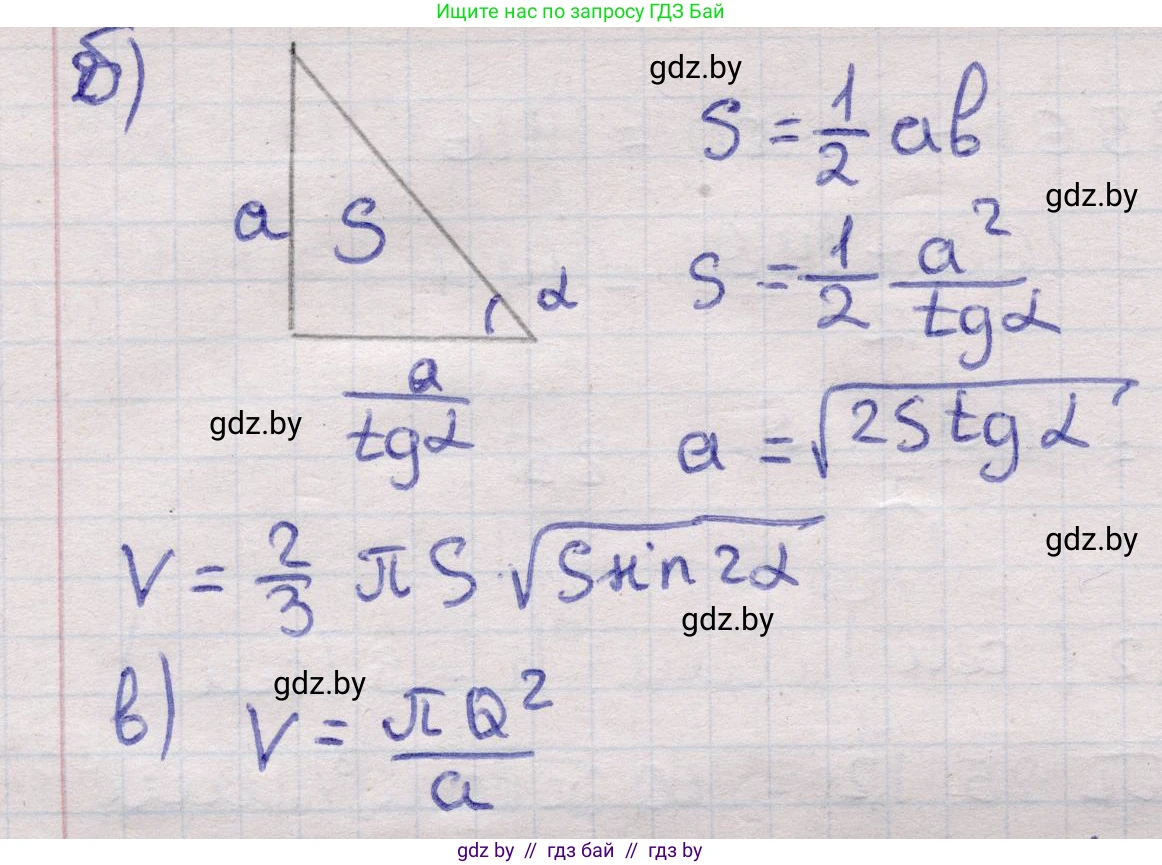 Ищите нас по запросу ГДЗ Бай
б)
gdz.by
S = 1/2 ab
gdz.by
a S α
S = 1/2 a²/tgα
a/tgα
gdz.by
a = √(2S tgα)
gdz.by
V = 2/3 πS √(S sin 2α)
gdz.by
в) gdz.by
V = πQ²/a
gdz.by // гдз бай // gdz.by